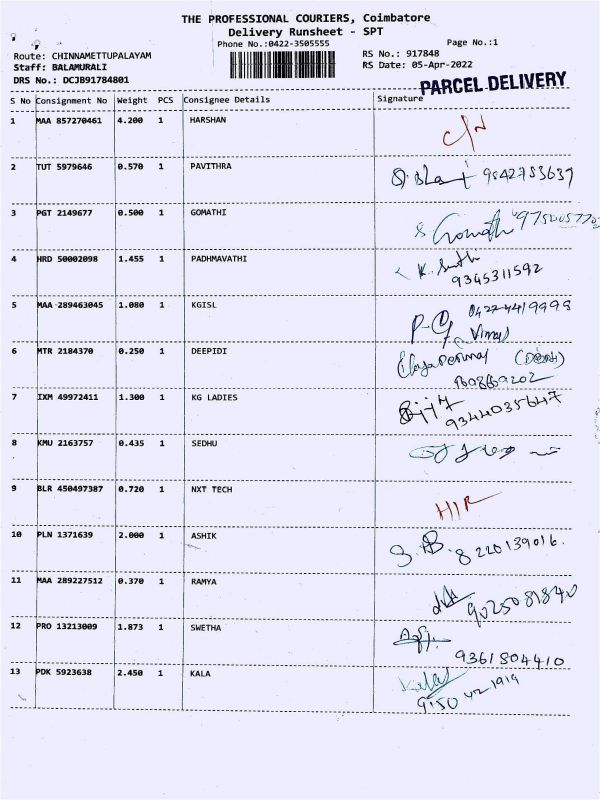 THE PROFESSIONAL COURIERS, Coimbatore
Delivery Runsheet - SPT
Phone No.:0422-3505555
Page No.:1
Route: CHINNAMETTUPALAYAM
RS No.: 917848
Staff: BALAMURALI
RS Date: 05-Apr-2022
DRS No.: DCJB91784801
PARCEL DELIVERY
S No Consignment No Weight PCS Consignee Details Signature
1 MAA 857270461 4.200 1 HARSHAN
C/N
2 TUT 5979646 0.570 1 PAVITHRA
9842753637
3 PGT 2149677 0.500 1 GOMATHI
Gomathi
4 HRD 50002098 1.455 1 PADHMAVATHI
K.
9345311592
5 MAA 289463045 1.080 1 KGISL
0422-4419999
6 MTR 2184370 0.250 1 DEEPIDI
7 IXM 49972411 1.300 1 KG LADIES
9344035647
8 KMU 2163757 0.435 1 SEDHU
9 BLR 450497387 0.720 1 NXT TECH
10 PLN 1371639 2.000 1 ASHIK
8220139016.
11 MAA 289227512 0.370 1 RAMYA
9025081840
12 PRO 13213009 1.873 1 SWETHA
9361804410
13 PDK 5923638 2.450 1 KALA
Kala
9150421919